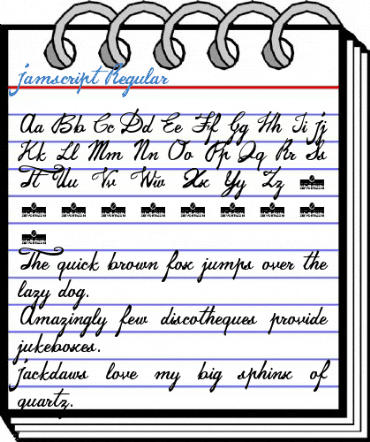 Jamscript Regular
Aa Bb Cc Dd Ee Ff Gg Hh Ii Jj
Kk Ll Mm Nn Oo Pp Qq Rr Ss
Tt Uu Vv Ww Xx Yy Zz
The quick brown fox jumps over the
lazy dog.
Amazingly few discotheques provide
jukeboxes.
Jackdaws love my big sphinx of
quartz.